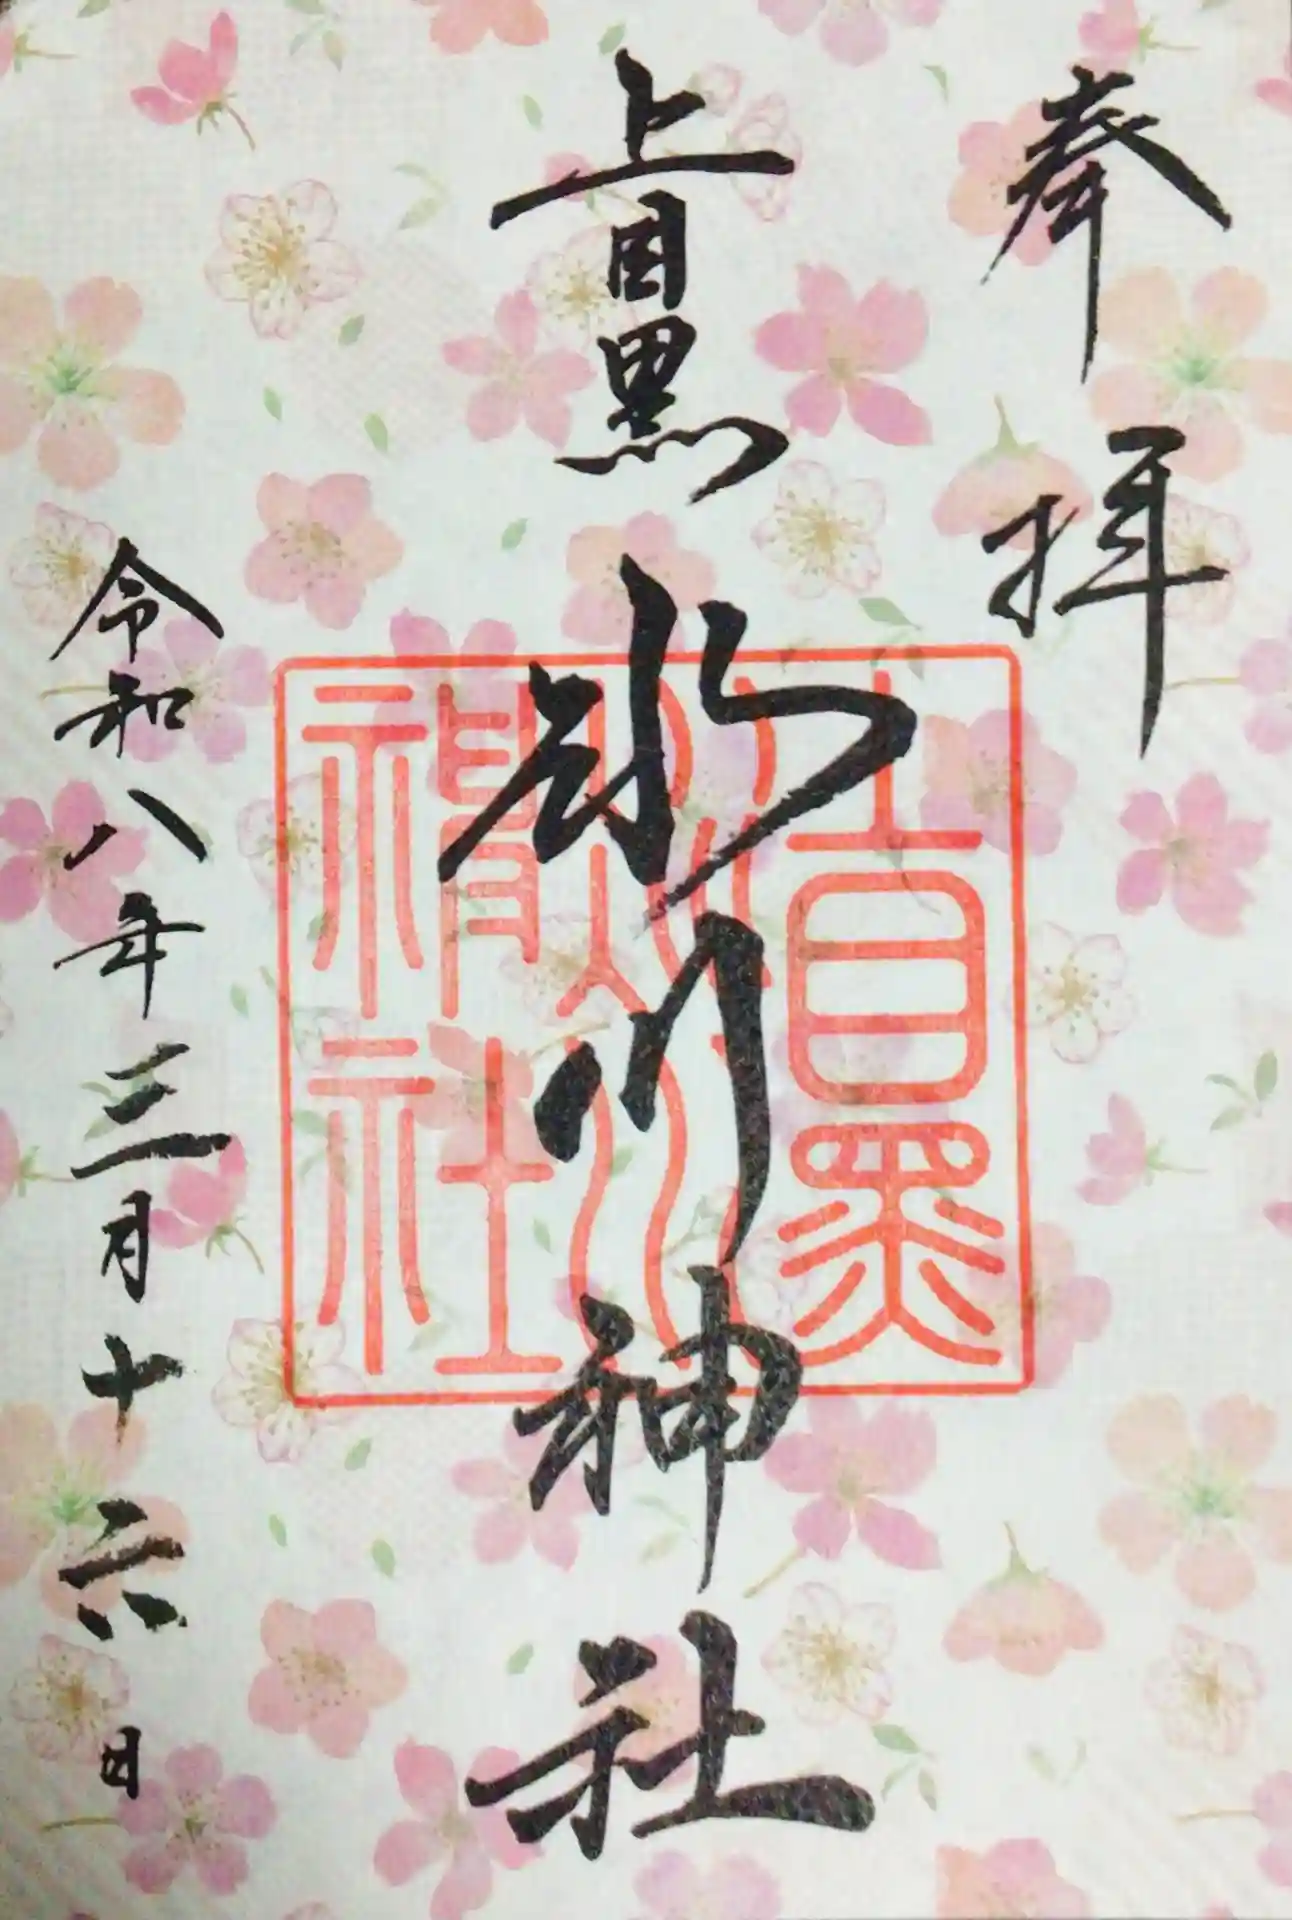 奉拝
上目黒氷川神社
上目黒
氷川
神社
令和八年三月十六日